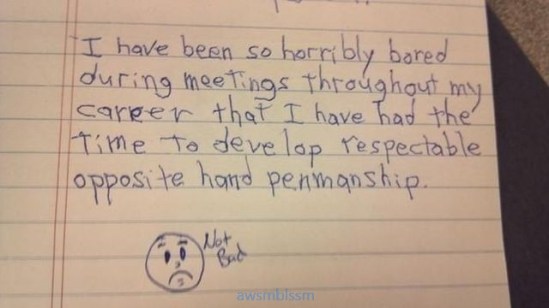 I have been so horribly bored
during meetings throughout my
career that I have had the
time to develop respectable
opposite hand penmanship.
Not
Bad
awsmblssm